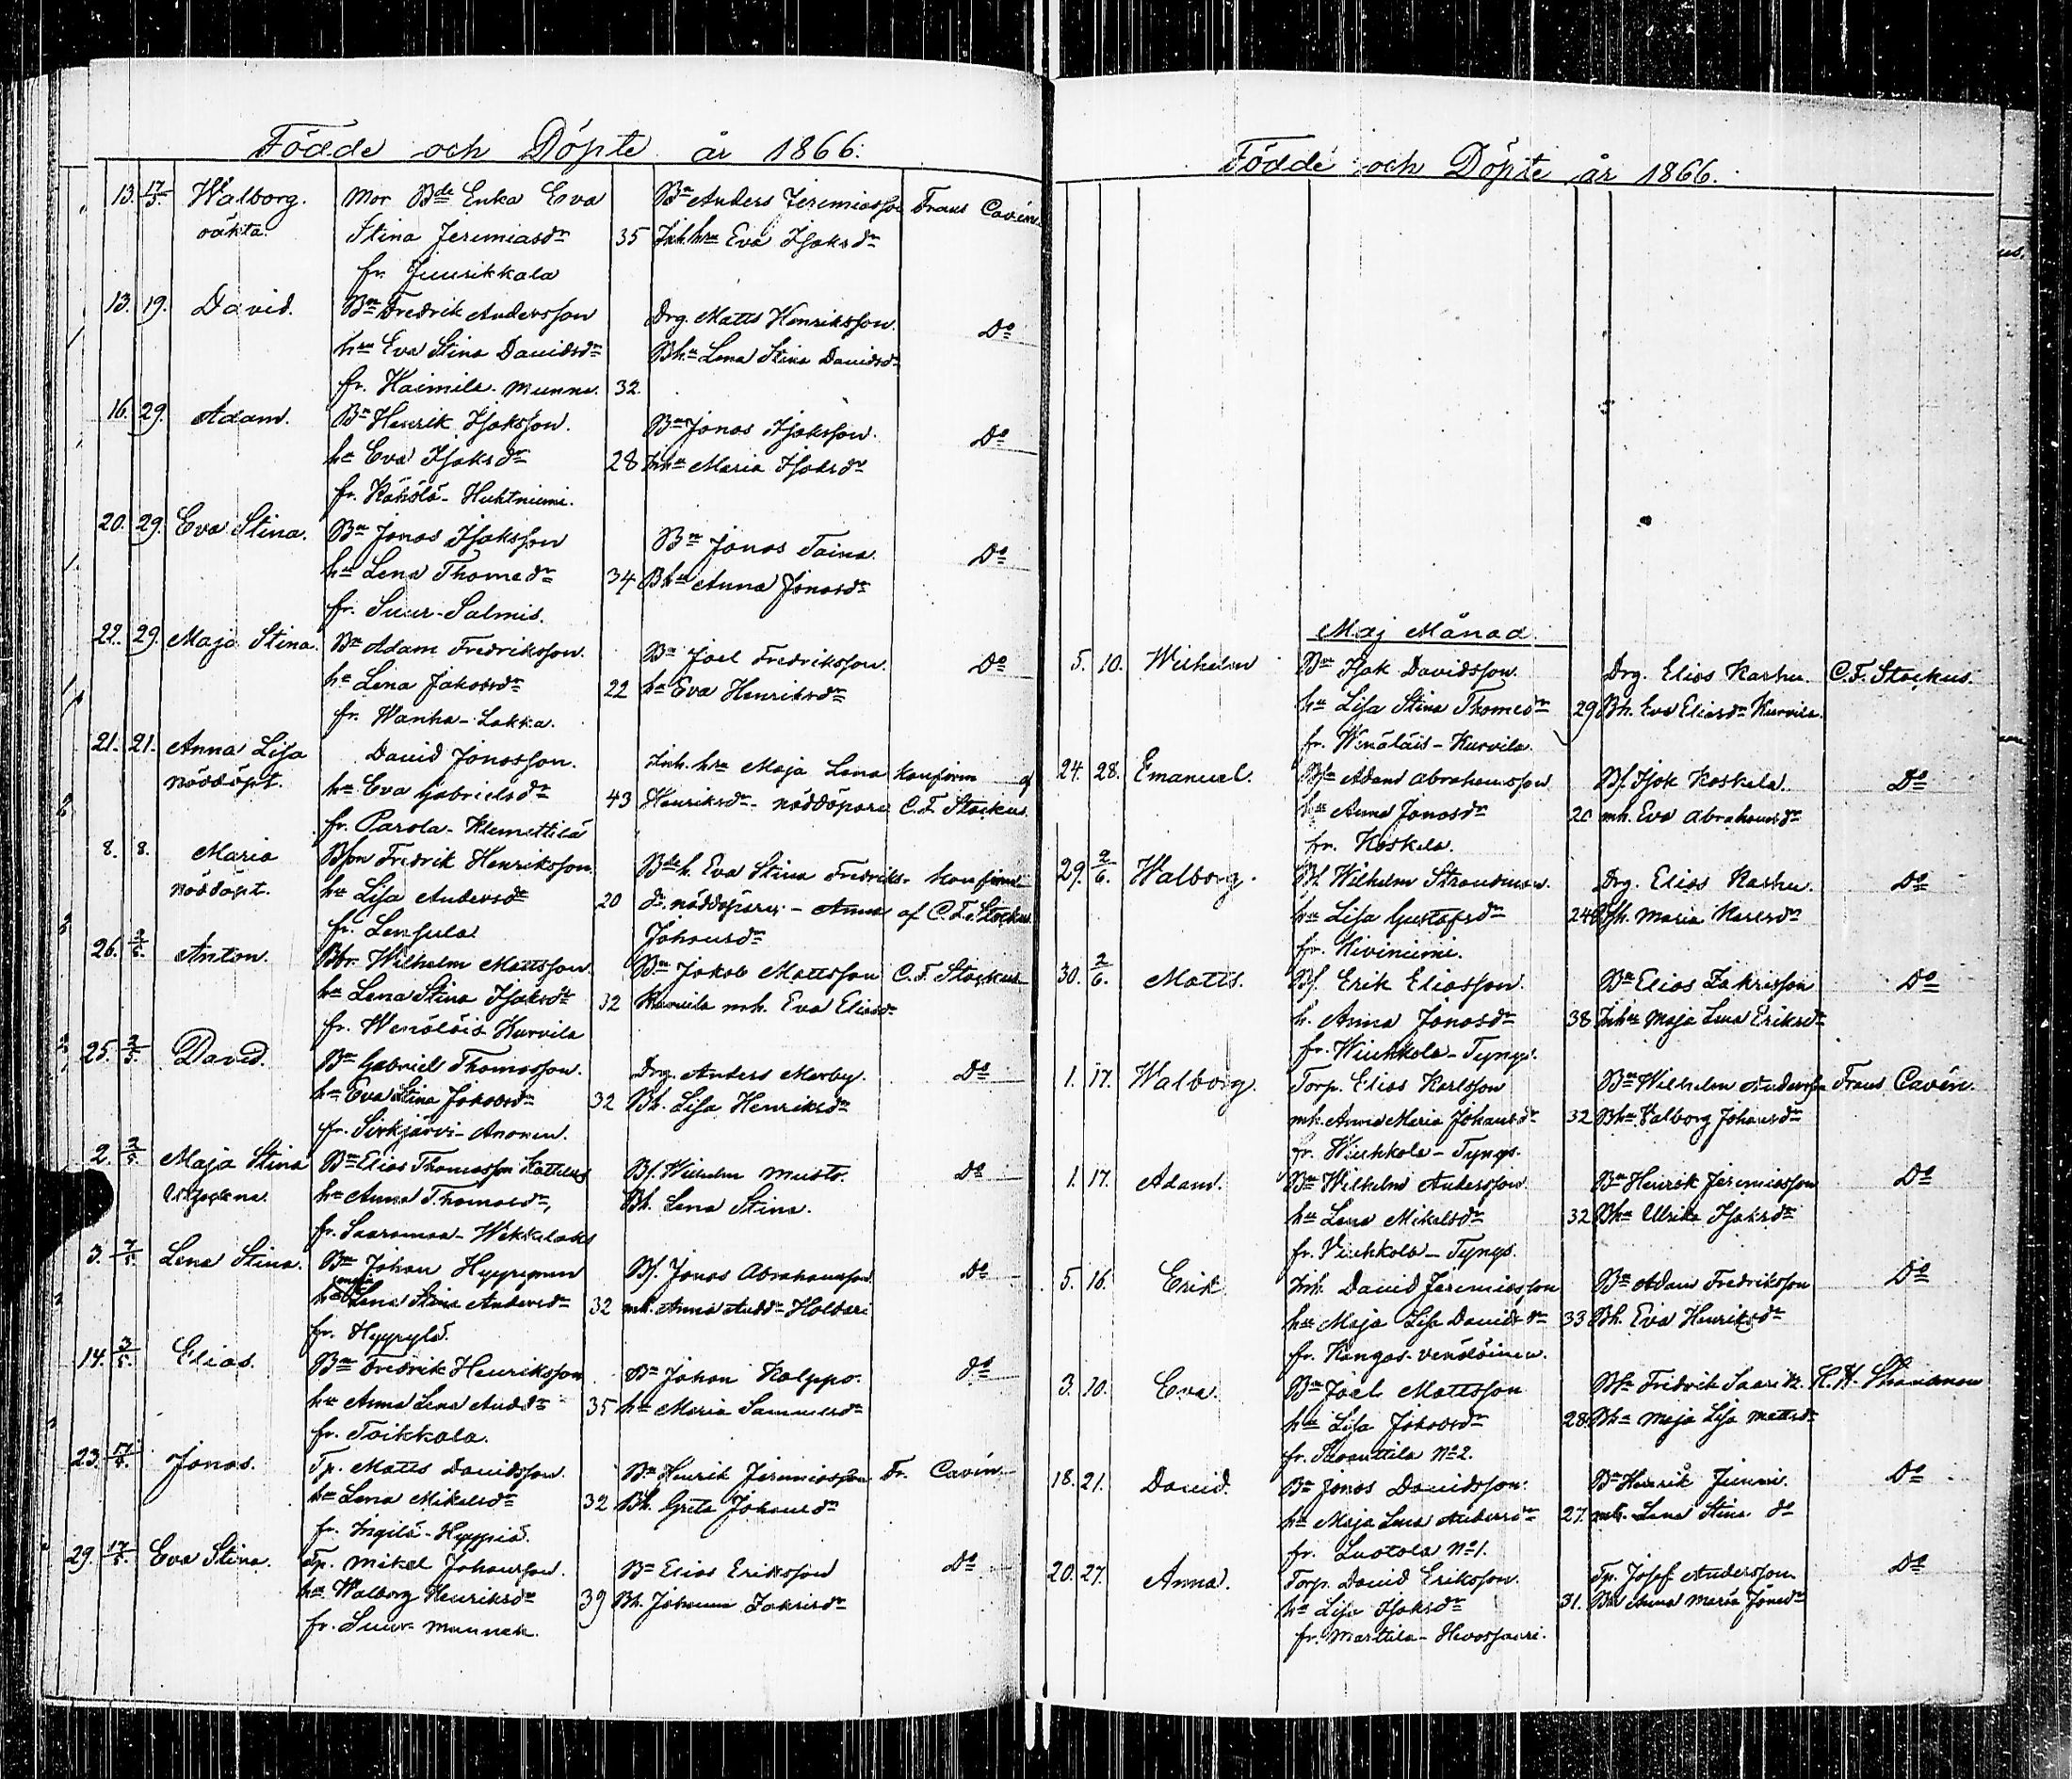 Födde och Döpte år 1866.
13. 17/5 Walborg. Mor Bde Enka Eva Bn Anders Jeremiasson Frans Cavén
oäkta. Stina Jeremiasdr 35 Inh. hru Eva Isaksdr
fr. Juurikkala
13. 19. David. Bn Fredrik Andersson Drg. Matts Henriksson. Do
hru Eva Stina Davidsdr Bhu Lena Stina Davidsdr
fr. Haimila. Munne. 32.
16. 29. Adam. Bn Henrik Isaksson. Bn Jonas Isaksson. Do
hu Eva Isaksdr 28 Inhu Maria Isaksdr
fr. Kökölä - Huktniemi.
20. 29. Eva Stina. Bn Jonas Isaksson Bn Jonas Taina. Do
hu Lena Thomedr 34 Bhu Anna Jonasdr
fr. Suur-Salmis.
22. 29. Maja Stina. Bn Adam Fredriksson. Bn Joel Fredriksson. Do
hu Lena Jakobsdr 22 hu Eva Henriksdr
fr. Wanha-Lakka.
21. 21. Anna Lisa David Jonasson. Inh. hru Maja Lena Konfirm af
nöddöpt. hu Eva Gabrielsdr 43 Henriksdr - nöddöpare C.F. Stockus.
fr. Parola - Klemettilä
8. 8. Maria Bson Fredrik Henriksson. Bde h. Eva Stina Fredriks- Konfirm
nöddöpt. hu Lisa Andersdr 20 dr. nöddöpare - Anna af C.F. Stockus
fr. Lensula Johansdr
26. 2/5. Anton. Bbr. Wilhelm Mattsson. Bn Jakob Mattsson C.F. Stockus
hu Lena Stina Isaksdr 32 Kurvila mh. Eva Eliasdr
fr. Wenäläis Kurvila
25. 2/5. David. Bn Gabriel Thomasson. Drg. Anders Marby. Do
hu Eva Stina Jakobsdr 32 Bh. Lisa Henriksdr
fr. Sirkjärvi - Anonen.
2. 2/5. Maja Stina Bn Elias Thomasson Kattelus Bs. Wilhelm Musto. Do
hu Anna Thomasdr, Bh. Lena Stina.
fr. Saaramaa - Wekkelaks
3. 7/5. Lena Stina. Bn Johan Hyyrynen Bs. Jonas Abrahamsson. Do
hu Lena Stina Andersdr 32 mh. Anna Andr Holttari
fr. Hyyrylä.
14. 3/5. Elias. Bn Fredrik Henriksson Bn Johan Kolppo. do
hu Anna Lena Andr 35 hu Maria Sammelsdr
fr. Toikkala.
23. Jonas. Tp. Matts Davidsson. Bn Henrik Jeremiasson Fr. Cavén.
hu Lena Mikelsdr 32 Bh. Greta Johansdr
fr. Ingilä - Hyypiä.
29. 17/5. Eva Stina. Tp. Mikel Johansson. Bn Elias Eriksson Do
hu Walborg Henriksdr 39 Bh. Johanna Zakrisdr
fr. Suur-Munnek.
Födde och Döpte år 1866.
Maj Månad
5. 10. Wilhelm Bn Isak Davidsson. Drg. Elias Karhu. C.F. Stockus.
hu Lisa Stina Thomedr 29 Bh. Eva Eliasdr Kurvila.
fr. Wenäläis - Kurvila.
24. 28. Emanuel. Bsn Adam Abrahamsson Bs. Isak Koskela. Do
hu Anna Jonasdr 20 mh. Eva Abrahamsdr
fr. Koskela.
29. 2/6. Walborg. Bs. Wilhelm Strandman. Drg. Elias Karhu. Do
hu Lisa Gustafsdr 24 Maria Karlsdr
fr. Kiviniemi.
30. 2/6. Matts. Bs. Erik Eliasson. Bn Elias Zakrisson Do
h. Anna Jonasdr 38 Inhu Maja Lena Eriksdr
fr. Wiuhkola - Tyngs.
1. 17. Walborg. Torp. Elias Karlsson Bn Wilhelm Andersson Frans Cavén.
mh. Anna Maria Johansdr 32 Bhu Valborg Johansdr
fr. Wiuhkola - Tyngs.
1. 17. Adam. Bn Wilhelm Andersson Bn Henrik Jeremiasson Do
hu Lena Mikelsdr 32 Bhu Ulrika Isaksdr
fr. Viuhkola - Tyngs.
5. 16. Erik Inh. David Jeremiasson Bn Adam Fredriksson Do
hu Maja Lisa Davidsdr 33 Bh. Eva Henriksdr
fr. Kangas-venäläinen.
3. 10. Eva. Bn Joel Mattsson Bsn Fredrik Saarik. K.H. Strandman
hu Lisa Jakobsdr 28 Bhu Maja Lisa Mattsdr
fr. Kvanttila No 2.
18. 21. David. Bn Jonas Davidsson. Bn Henrik Junni. Do
hu Maja Lena Andersdr 27. mh. Lena Stina do
fr. Luotola No 1.
20. 27. Anna. Torp. David Eriksson. Tp. Josef Andersson Do
hu Lisa Isaksdr 31. Bhu Anna Maria Jonasdr
fr. Marttila - Hevossaari.